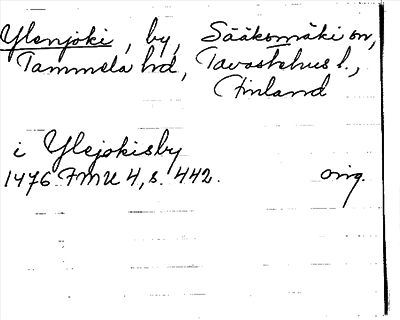 Ylenjoki, by, Sääksmäki sn,
Tammela hd, Tavastehus l.,
Finland
i Ylejokisby
1476 FMU 4, s. 442. orig.